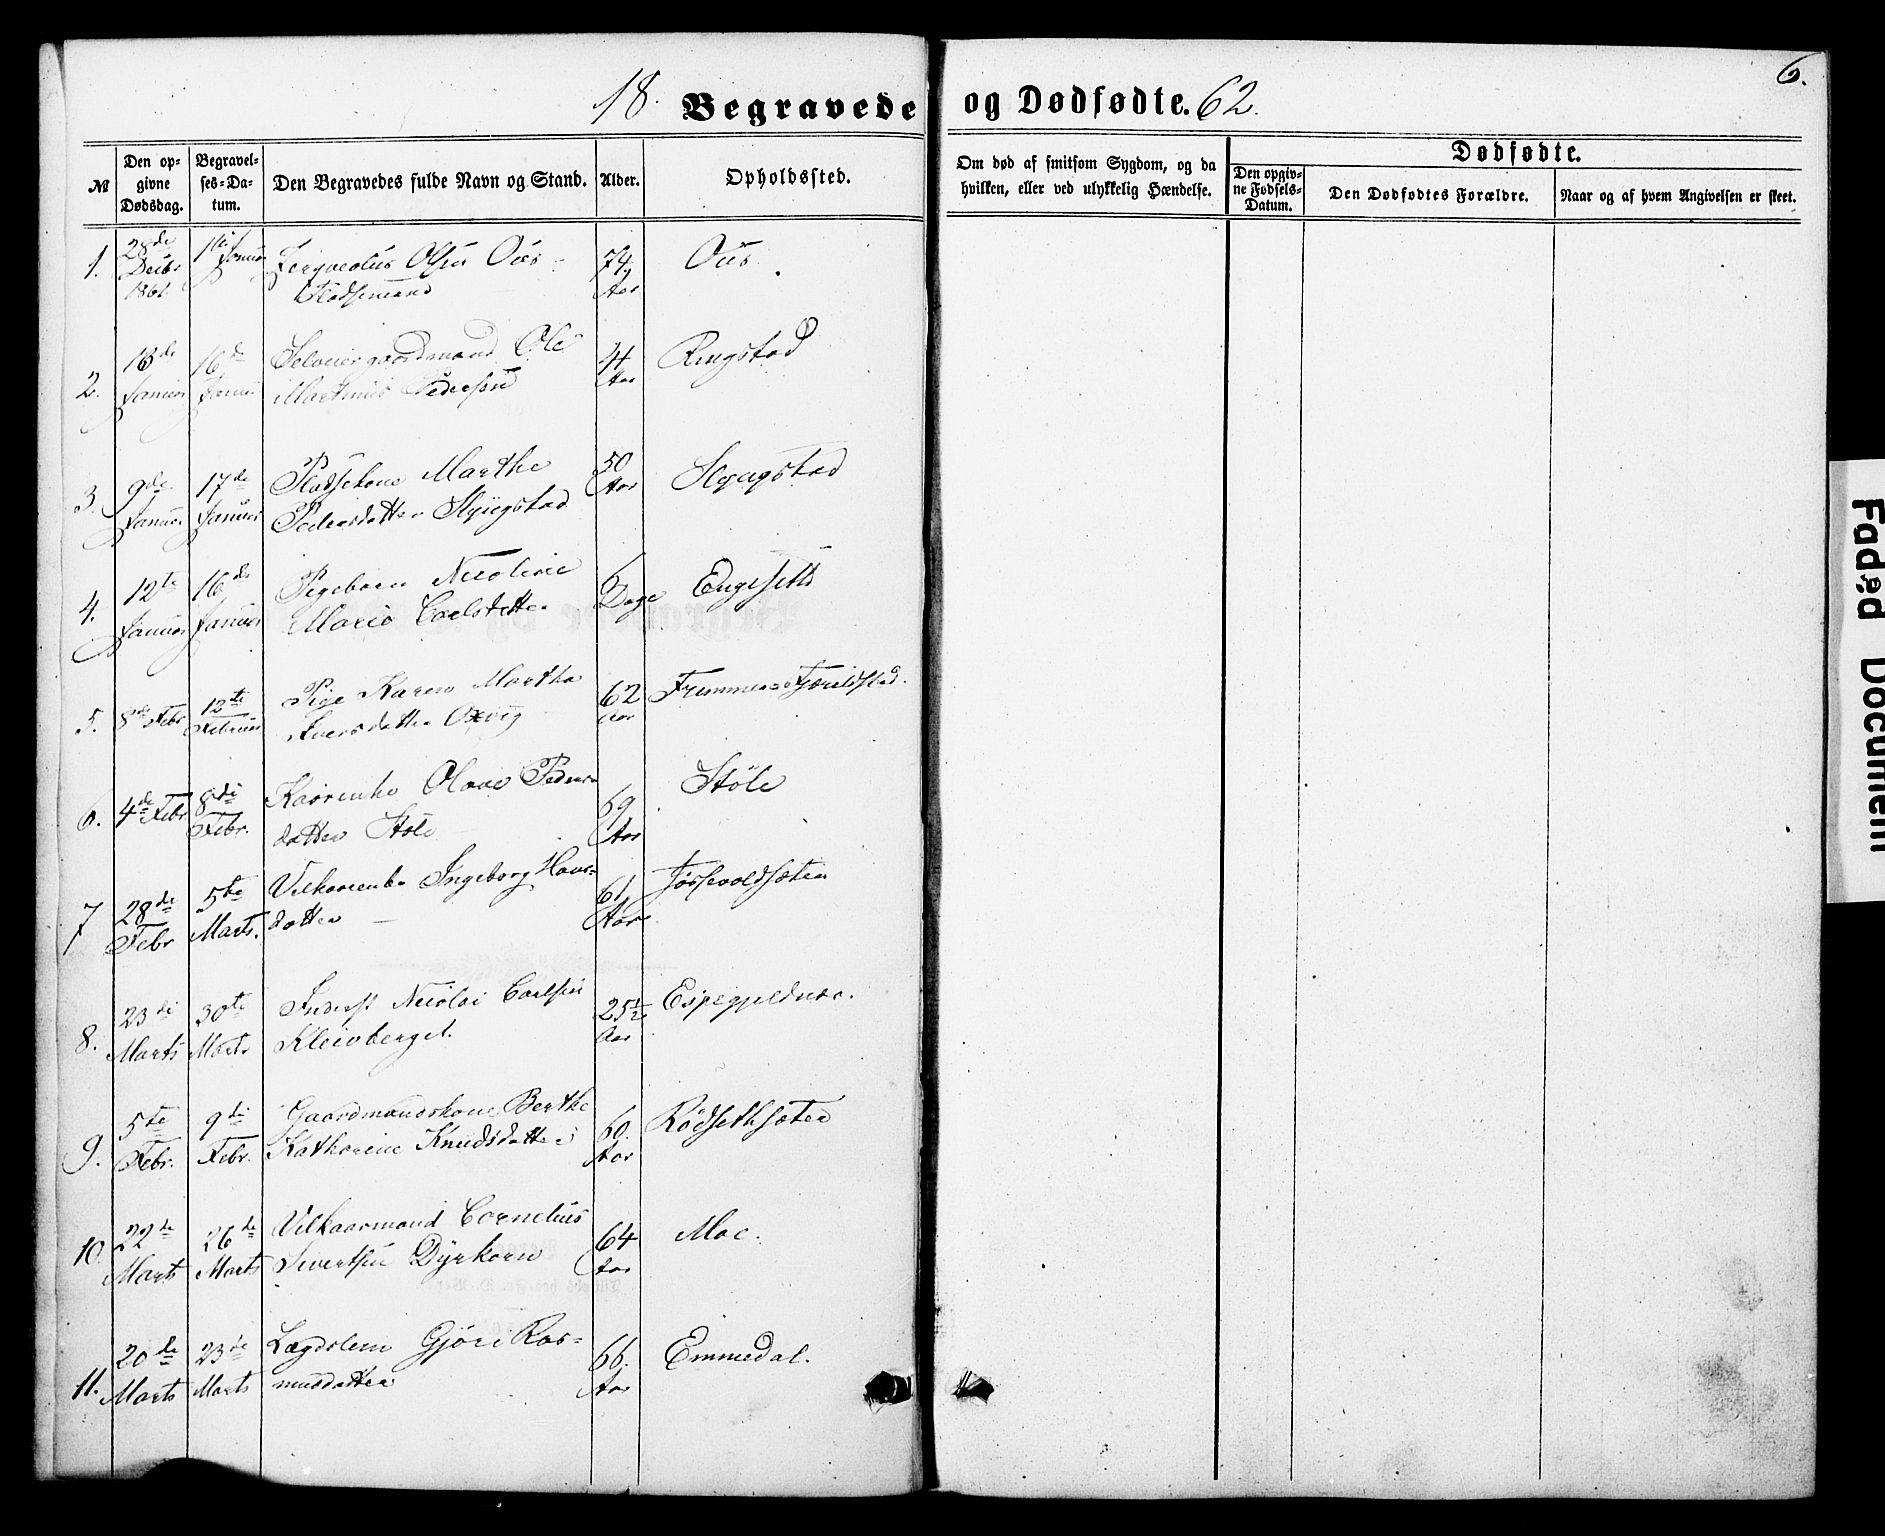 18 Begravede og Dødfødte. 62.
6.
№
Den op-
givne
Dødsdag.
Begravel-
ses-Da-
tum.
Den Begravedes fulde Navn og Stand.
Alder.
Opholdssted.
Om død af smitsom Sygdom, og da
hvilken, eller ved ulykkelig Hændelse.
Dødfødte.
Den opgiv-
ne Fødsels-
Datum.
Den Dødfødtes Forældre.
Naar og af hvem Angivelsen er skeet.
1. 28de Decbr 1861. Olsen Ous 74 Aar Ous
Pladsemand
2. 16de Januar Selveier gaardmand Ole 41 Aar Ringstad
Martinus Pedersen
3. 9de Januar 17de Januar Pladsekone Marthe 50 Aar
Pedersdatter
4. 12te Januar 16de Januar Pigebarn Nicoline 6 Dage Engesetli
Marie Carlsdatter
5. 8de Febr 12te Februar Pige Karen Marthe 62 Aar
Iversdatter Oxvig
6. 4de Febr 8de Febr. Olave Peders- 69 Aar Støle
datter Støle
7 28de Febr 5te Marts. Ingeborg 61 Aar
datter
8. 23de Marts 30te Marts Inderst Nicolai Carlsen 25½ Aar
Kleivberget.
9. 5te Febr. 9de Febr. Gaardmandskone Berthe 60. Aar Rødsethsæter
Katharine Knudsdatter
10. 22de Marts 26de Marts Vilkaarmand Cornelius 64 Aar Moe.
Sivertsen Dyrkorn
11. 20de Marts 23de Marts Lægdslem Gjøre Ras- 66. Aar Emmedal.
musdatter
Faded Document